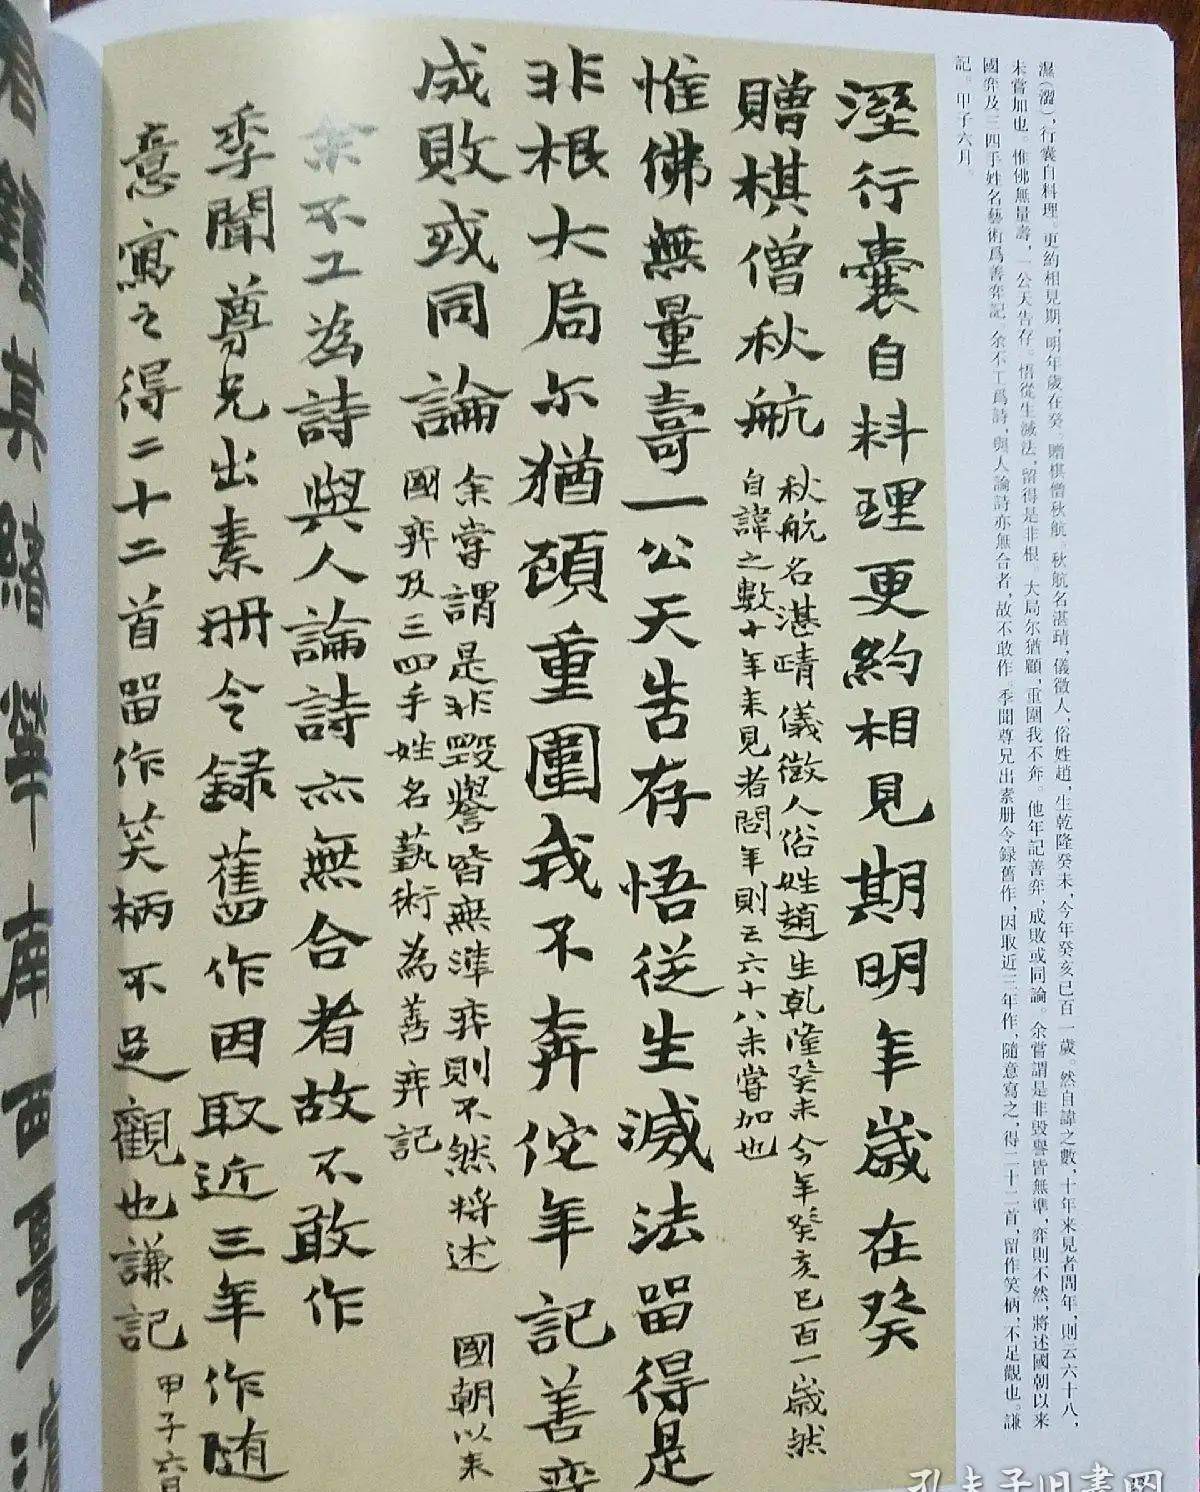 濕（澀），行囊自料理。更約相見期，明年歲在癸。贈棋僧秋航。秋航名湛睛，儀徵人，俗姓趙，生乾隆癸未，今年癸亥已百一歲。然自諱之數，十年來見者問年，則云六十八，
未嘗加也。惟佛無量壽，一公天告存。悟從生滅法，留得是非根。大局尔猶顧，重圍我不奔。他年記善弈，成敗或同論。余嘗謂是非毀譽皆無準，弈則不然，將述國朝以来
國弈及三四手姓名藝術爲善弈記。余不工爲詩，與人論詩亦無合者，故不敢作。季聞尊兄出素册令録舊作，因取近三年作，隨意寫之，得二十二首，留作笑柄，不足觀也。謙
記。甲子六月。
溼行囊自料理更約相見期明年歲在癸
贈棋僧秋航
秋航名湛晴儀徵人俗姓趙生乾隆癸未今年癸亥已百一歲然
自諱之數十年来見者問年則云六十八未嘗加也
惟佛無量壽一公天告存悟從生滅法留得是
非根大局尔猶顧重圍我不奔佗年記善弈
成敗或同論
余嘗謂是非毀譽皆無準弈則不然將述 國朝以来
國弈及三四手姓名藝術為善弈記
余不工為詩與人論詩亦無合者故不敢作
季聞尊兄出素册令録舊作因取近三年作随
意寫之得二十二首留作笑柄不足觀也謙記
甲子六月
春鐘其緒
南西
孔夫子旧書网